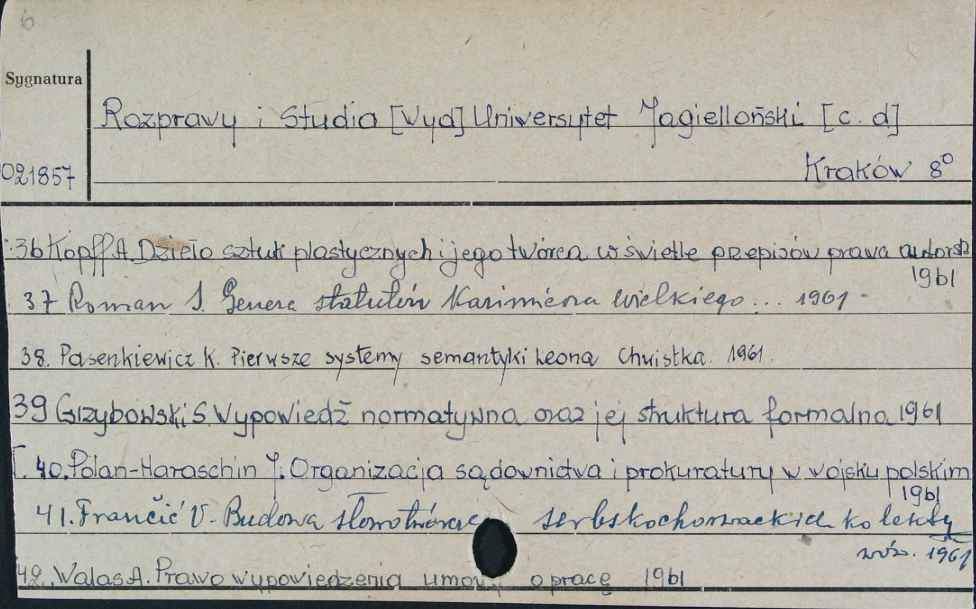 6
Sygnatura
Rozprawy i Studia [Wyd] Uniwersytet Jagielloński [c. d]
021857
Kraków 8°
36 Kopff A. Dzieło sztuk plastycznych i jego twórca w świetle przepisów prawa autorsk
1961
37 Roman S. Geneza statutów Kazimierza Wielkiego ... 1961
38. Pasenkiewicz K. Pierwsze systemy semantyki Leona Chwistka. 1961.
39 Grzybowski S Wypowiedź normatywna oraz jej struktura formalna 1961
T. 40. Polan-Haraschin J. Organizacja sądownictwa i prokuratury w wojsku polskim
1961
41. Frančić V. Budowa słowotwórcza serbskochorwackich kolekty
wów. 1961
42. Walas A. Prawo wypowiedzenia umowy o pracę 1961